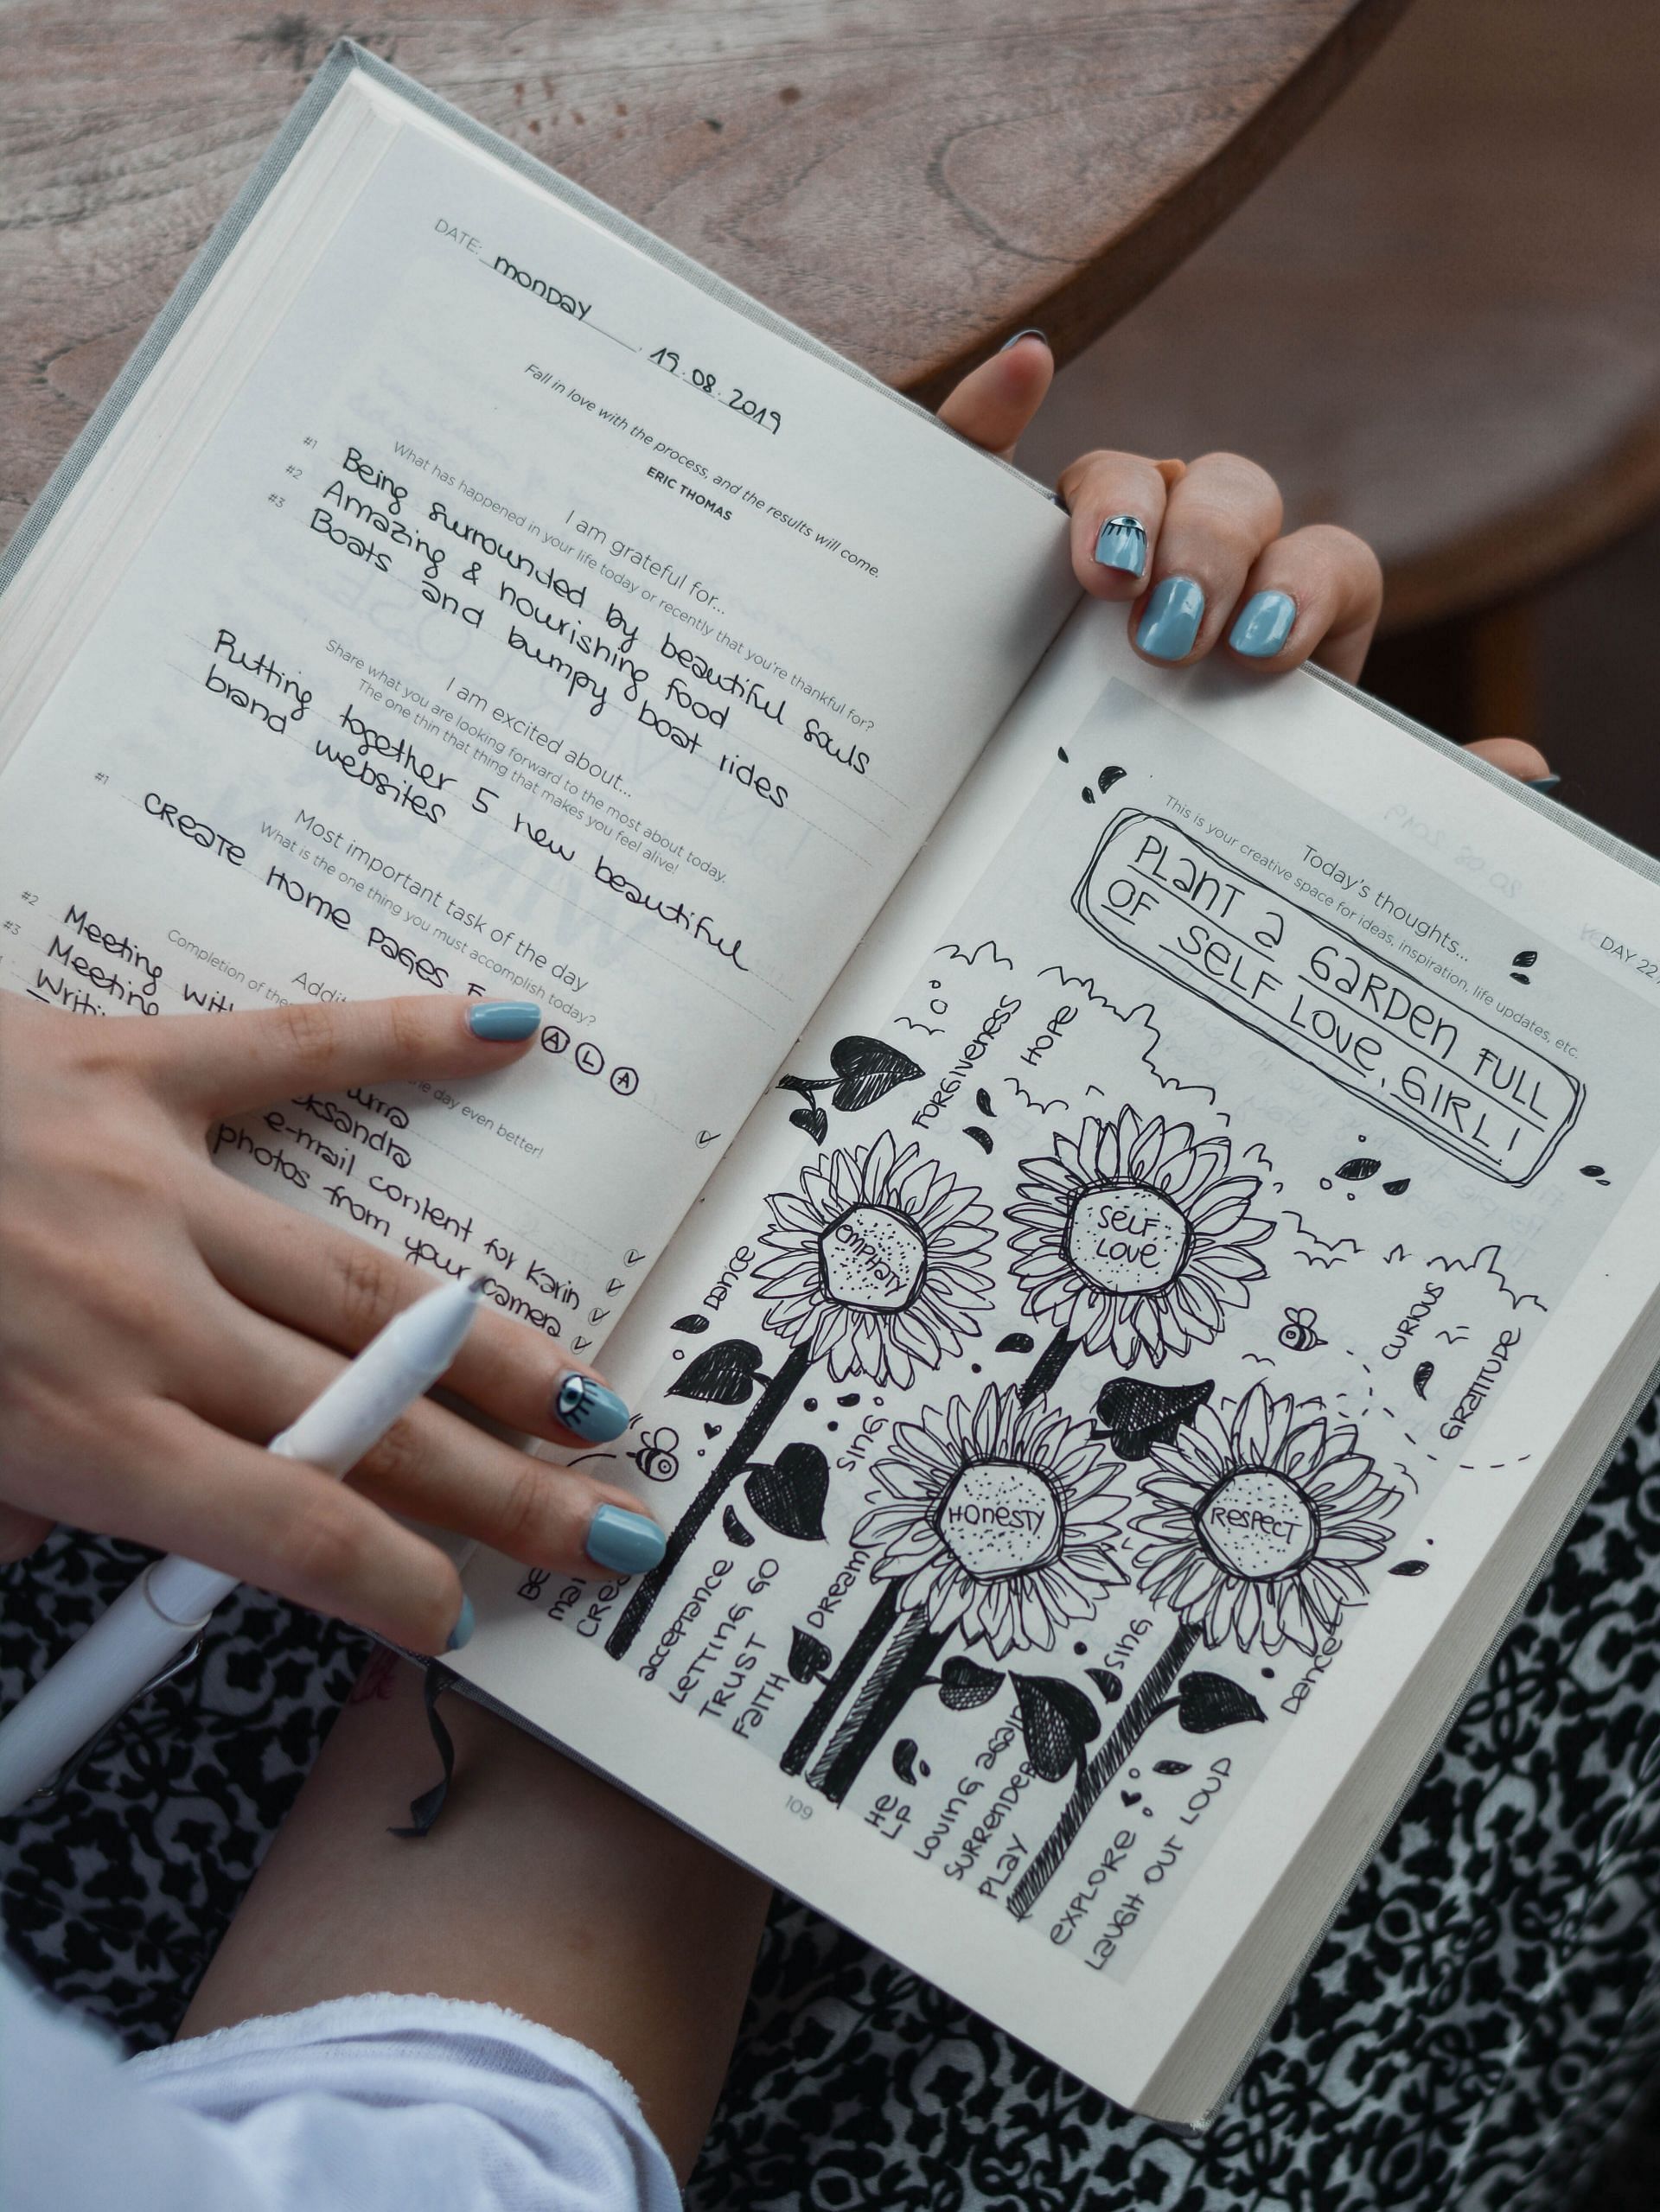 DATE: monday 19.08.2019
Fall in love with the process, and the results will come.
ERIC THOMAS
I am grateful for...
What has happened in your life today or recently that you're thankful for?
#1 Being surrounded by beautiful souls
#2 Amazing & nourishing food
#3 Boats and bumpy boat rides
I am excited about...
Share what you are looking forward to the most about today.
The one thin that thing that makes you feel alive!
Putting together 5 new beautiful
brand websites
Most important task of the day
What is the one thing you must accomplish today?
#1 CREATE HOME PAGES
A L A
Completion of the
day even better!
#2 Meeting
#3 Meeting
e-mail content for Karin
photos from your camera
DAY 22
Today's thoughts...
This is your creative space for ideas, inspiration, life updates, etc.
PLANT A GARDEN FULL
OF SELF LOVE, GIRL!
FORGIVENESS
HOPE
EMPHATY
SELF
LOVE
DANCE
CURIOUS
GRATITUDE
SING
HONESTY
RESPECT
ACCEPTANCE
LETTING GO
TRUST
FAITH
DREAM
SING
DANCE
HE
LP
LOVING AGAIN
SURRENDER
PLAY
EXPLORE
LAUGH OUT LOUD
109